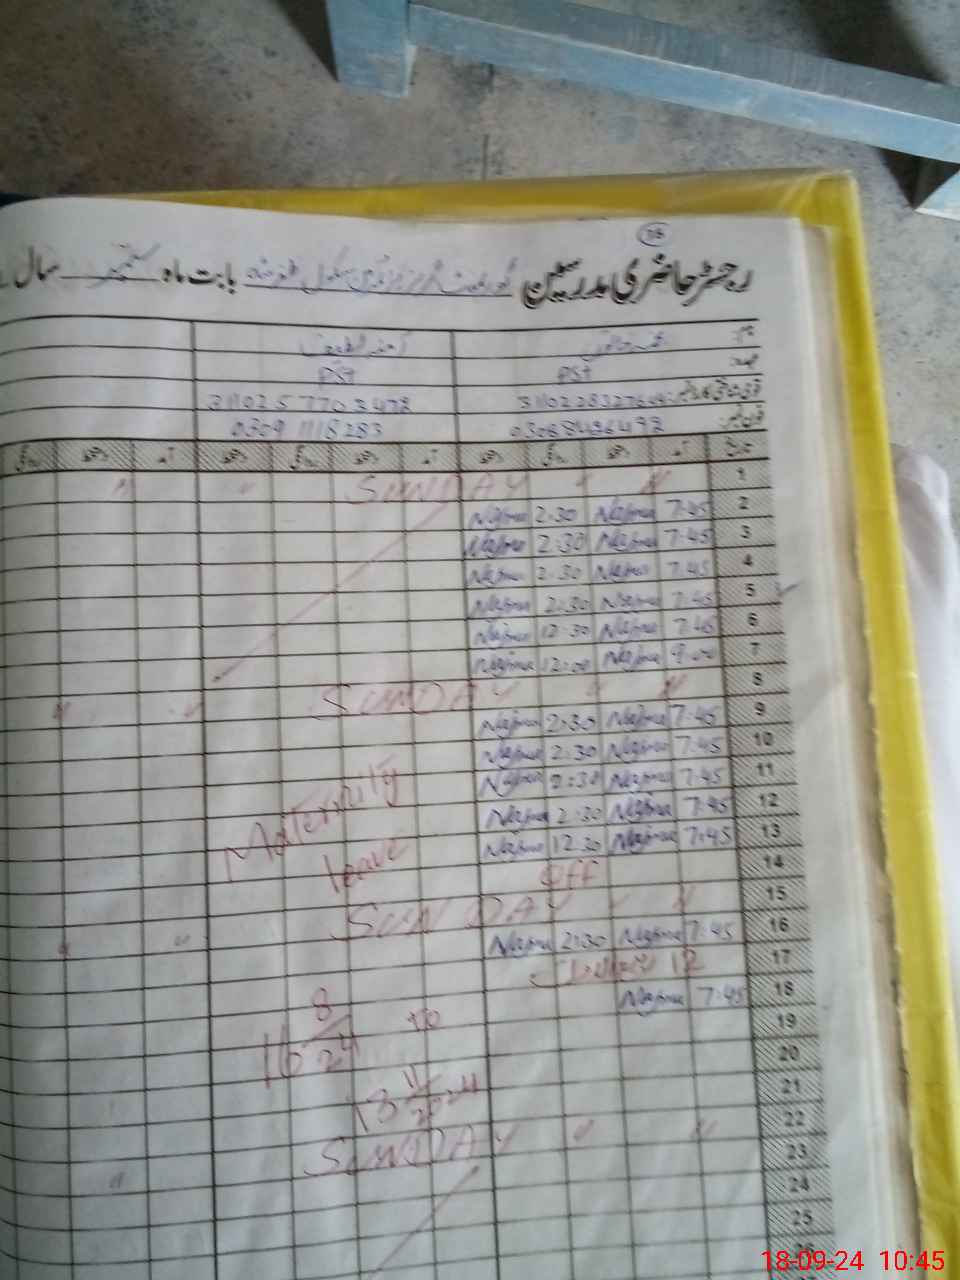 16
رجسٹر حاضری مدرسین گورنمنٹ گرلز پرائمری سکول بابت ماہ ستمبر سال
نام
عہدہ PST PST
3110257703472
فون نمبر 03068436492 03091118283
تاریخ آمد دستخط روانگی دستخط آمد دستخط روانگی دستخط
1 " " SUNDAY " "
2 7:45 Najma 2:30 Najma
3 7:45 Najma 2:30 Najma
4 7:45 Najma 2:30 Najma
5 7:45 Najma 2:30 Najma
6 7:45 Najma 12:30 Najma
7 9:00 Najma 12:00 Najma
8 " " SUNDAY " "
9 7:45 Najma 2:30 Najma
10 7:45 Najma 2:30 Najma
11 7:45 Najma 2:30 Najma
12 7:45 Najma 2:30 Najma
13 7:45 Najma 12:30 Najma
Maternity
leave
14 off
15 " " SUNDAY " "
16 7:45 Najma 2:30 Najma
17 12 ربیع الاول
18 7:45 Najma
19
20
21
22 " " SUNDAY "
23
24
25
16 8/24 to
11/2024
18-09-24 10:45